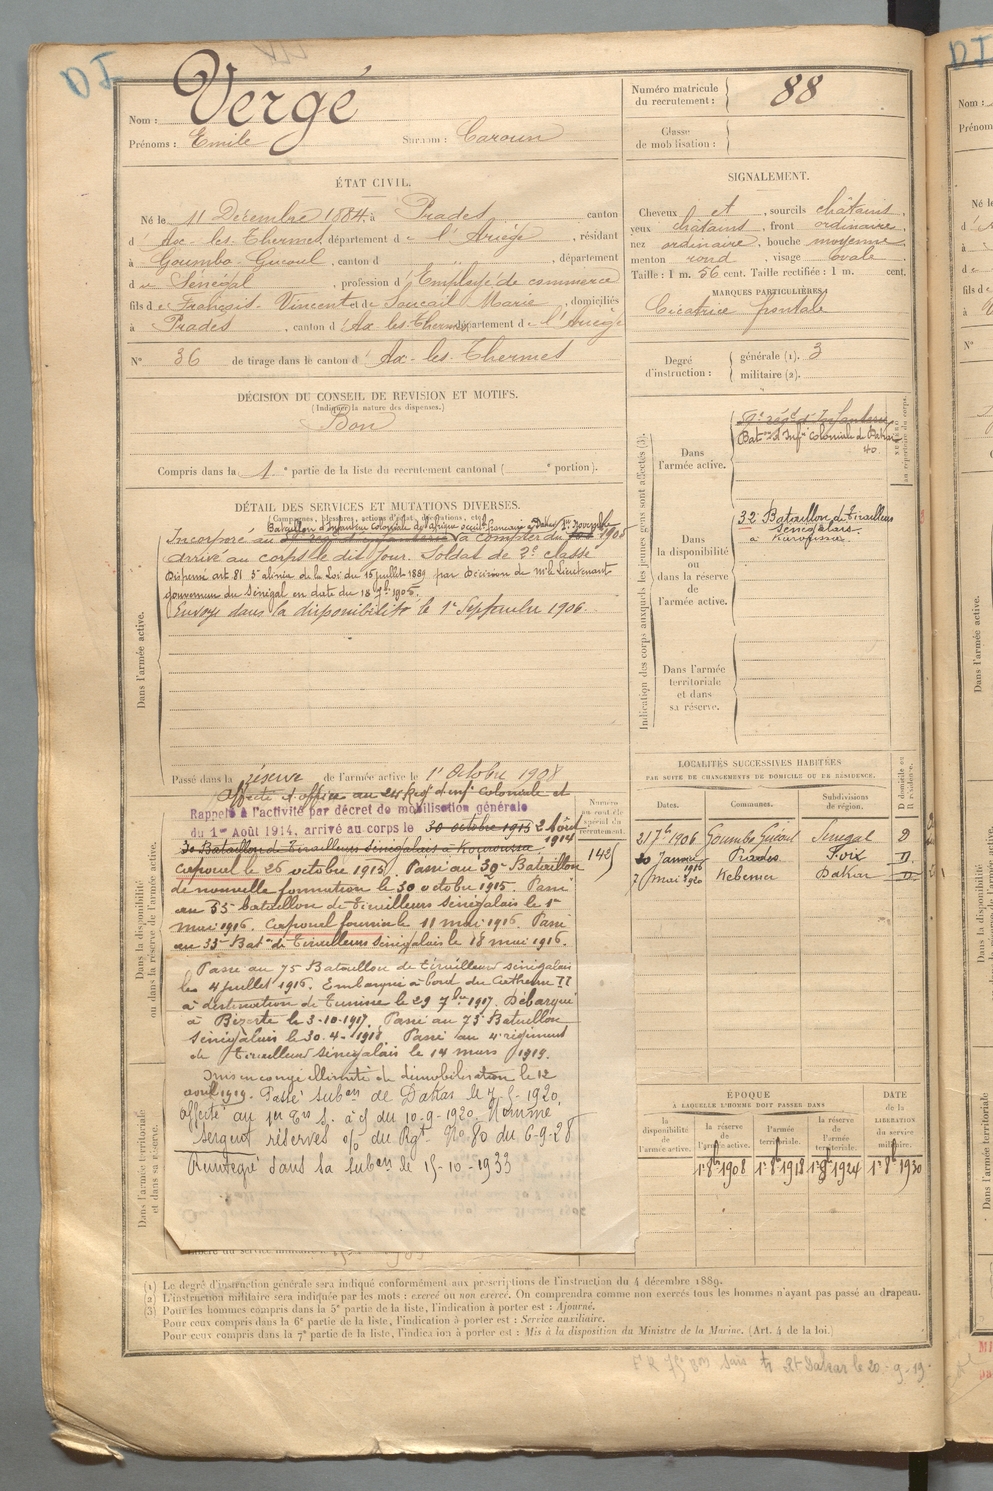 DI
Nom : Vergé
Prénoms : Emile Surnom : Caroun
Numéro matricule du recrutement : 88
Classe de mobilisation :
ÉTAT CIVIL.
Né le 11 Décembre 1884, à Prades canton
d' Ax-les-Thermes, département de l'Ariège, résidant
à Goumbo-Guéoul, canton d , département
du Sénégal, profession d'Employé de commerce
fils de François-Vincent et de Soucail Marie, domiciliés
à Prades, canton d'Ax les-Thermes, département de l'Ariège
N° 36 de tirage dans le canton d'Ax-les-Thermes
SIGNALEMENT.
Cheveux et , sourcils châtains,
yeux châtains, front ordinaire,
nez ordinaire, bouche moyenne
menton rond, visage ovale
Taille : 1 m. 56 cent. Taille rectifiée : 1 m. cent.
MARQUES PARTICULIÈRES :
Cicatrice frontale
Degré d'instruction : générale (1). 3
militaire (2).
DÉCISION DU CONSEIL DE REVISION ET MOTIFS.
(Indiquer la nature des dispenses.)
Bon
Compris dans la 1e partie de la liste du recrutement cantonal ( e portion).
DÉTAIL DES SERVICES ET MUTATIONS DIVERSES.
(Campagnes, blessures, actions d'éclat, décorations, etc.)
Bataillon d'Infanterie Coloniale de l'Afrique occid. française à Dakar 1er novembre
Incorporé au à compter du 1905
arrivé au corps le dit jour. Soldat de 2e classe
Dispensé art. 81 5e alinéa de la Loi du 15 juillet 1889 par Décision de Mr le Lieutenant
gouverneur du Sénégal en date du 18 7bre 1905.
Envoyé dans la disponibilité le 1er Septembre 1906.
Dans l'armée active.
Passé dans la réserve de l'armée active le 1er Octobre 1908
Affecté d'office au 24 Régt d'inf. coloniale et
Rappelé à l'activité par décret de mobilisation générale
du 1er Août 1914, arrivé au corps le 30 octobre 1915 2 Août 1914
30 Bataillon de Tirailleurs Sénégalais à Kouroussa
Caporal le 26 octobre 1915. Passé au 39e Bataillon
de nouvelle formation le 30 octobre 1915. Passé
au 35e bataillon de Tirailleurs Sénégalais le 1er
mai 1916. Caporal fourrier le 11 mai 1916. Passé
au 33e Baton de Tirailleurs Sénégalais le 18 mai 1916.
Passé au 75 Bataillon de Tirailleurs sénégalais
les 4 juillet 1916. Embarqué à bord du
à destination de Tunisie le 29 7bre 1917. Débarqué
à Bizerte le 3-10-1917. Passé au 73e Bataillon
Sénégalais le 30-4-1918. Passé au 4e régiment
de Tirailleurs Sénégalais le 14 mars 1919.
Mis en congé illimité de démobilisation le 12
avril 1919. Passé subon de Dakar le 7-5-1920.
affecté au 1er Ers S. à c/ du 10-9-1920. Nommé
Sergent réserves o/ du Rgt No 80 du 6-9-28
Réintégré dans sa subon le 15-10-1933
Dans la disponibilité ou dans la réserve de l'armée active.
Dans l'armée territoriale et dans sa réserve.
Numéro au contrôle spécial du recrutement.
1425
Indication des corps auxquels les jeunes gens sont affectés (3).
Dans l'armée active.
9e régt d'Infanterie
Baton d'Infie Coloniale de Dakar
40.
NUMÉRO au répertoire du corps.
Dans la disponibilité ou dans la réserve de l'armée active.
32 Bataillon de Tirailleurs
Sénégalais.
à Kouroussa.
Dans l'armée territoriale et dans sa réserve.
LOCALITÉS SUCCESSIVES HABITÉES
PAR SUITE DE CHANGEMENTS DE DOMICILE OU DE RÉSIDENCE.
Dates. Communes. Subdivisions de région. D domicile ou R résidence.
21 7bre 1906 Goumbo Guéoul Sénégal D
20 Janvier 1916 Prades Foix D
7 mai 1920 Kébémer Dakar D
ÉPOQUE
À LAQUELLE L'HOMME DOIT PASSER DANS
DATE de la LIBÉRATION du service militaire.
la disponibilité de l'armée active.
la réserve de l'armée active. 1er 8bre 1908
l'armée territoriale. 1er 8bre 1918
la réserve de l'armée territoriale. 1er 8bre 1924
1er 8bre 1930
(1) Le degré d'instruction générale sera indiqué conformément aux prescriptions de l'instruction du 4 décembre 1889.
(2) L'instruction militaire sera indiquée par les mots : exercé ou non exercé. On comprendra comme non exercés tous les hommes n'ayant pas passé au drapeau.
(3) Pour les hommes compris dans la 5e partie de la liste, l'indication à porter est : Ajourné.
Pour ceux compris dans la 6e partie de la liste, l'indication à porter est : Service auxiliaire.
Pour ceux compris dans la 7e partie de la liste, l'indication à porter est : Mis à la disposition du Ministre de la Marine. (Art. 4 de la loi.)
Dakar le 20-9-19